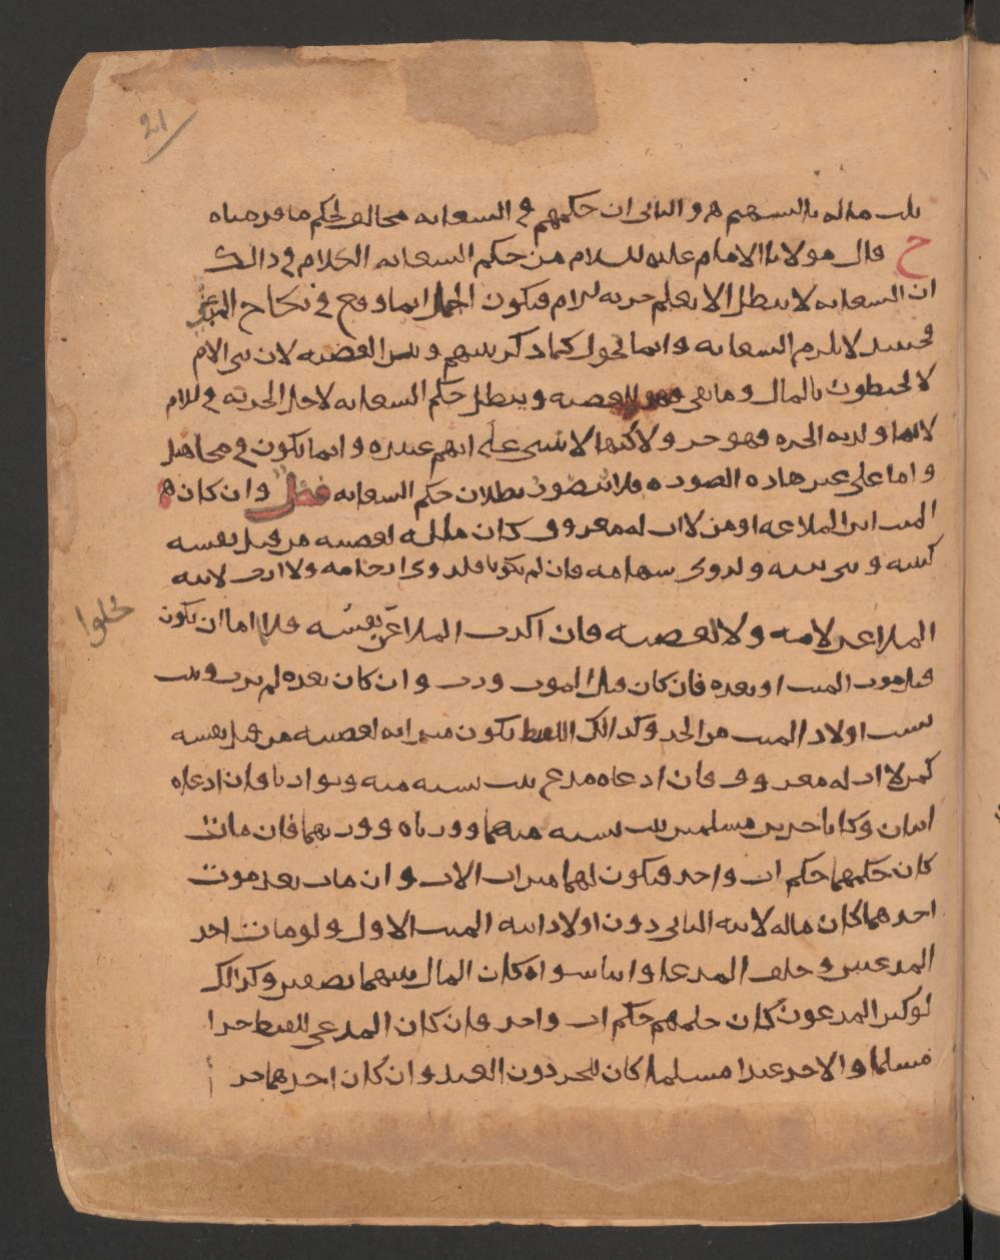 21
ثلث ماله بالسهم هم والثاني ان حكمهم في السعايه مخالف لحكم ما قدمناه
ح قال مولانا الامام عليه السلام من حكم السعايه الكلام في ذالك
ان السعايه لا تبطل الا بعلم حريه الام فيكون انما وقع في نكاح
فحينئذ لا يلزم السعايه وانما تحول كما ذكر بينهم وبين العصبه لان بني الام
لا يحيطون بالمال وما بقي فهو للعصبه ويبطل حكم السعايه لاجل الحريه في الام
لانما ولدته الحره فهو حر ولا كنها لا شي على انهم عبيده وانما يكون في مجاهيل
واما على غير هاذه الصوره فلا يتصور بطلان حكم السعايه فصل وان كان
الميت ابن الملاعنه او من لا اب له معروف كان ماله لعصبته من قبل نفسه
كبنيه وبني بنيه ولذوي سهامه فان لم يكونا فلذوي ارحامه ولا ارث لابيه
الملاعن لامه ولا لعصبته فان اكذب الملاعن نفسه فلا اما ان يكون
قبل موت الميت او بعده فان كان قبل الموت ورث وان كان بعده لم يرث ويثبت
نسب اولاد الميت من الجد وكذالك اللقيط يكون ميراثه لعصبته من قبل نفسه
كمن لا اب له معروف فان ادعاه مدع ثبت نسبه منه وتوارثا فان ادعاه
اثنان وكانا حرين مسلمين ثبت نسبه منهما وورثاه وورثهما فان ماتا
كان حكمهما حكم اب واحد فيكون لهما ميراث الاب وان مات بعد موت
احدهما كان ماله لابيه الثاني دون اولاد ابيه الميت الاول ولو مات احد
المدعيين وخلف المدعا وابنا سواه كان المال بينهما نصفين وكذالك
لو كثر المدعون كان حكمهم حكم اب واحد فان كان المدعي للقيط حرا
مسلما والاخر عبدا مسلما كان للحر دون العبد وان كان احدهما حر